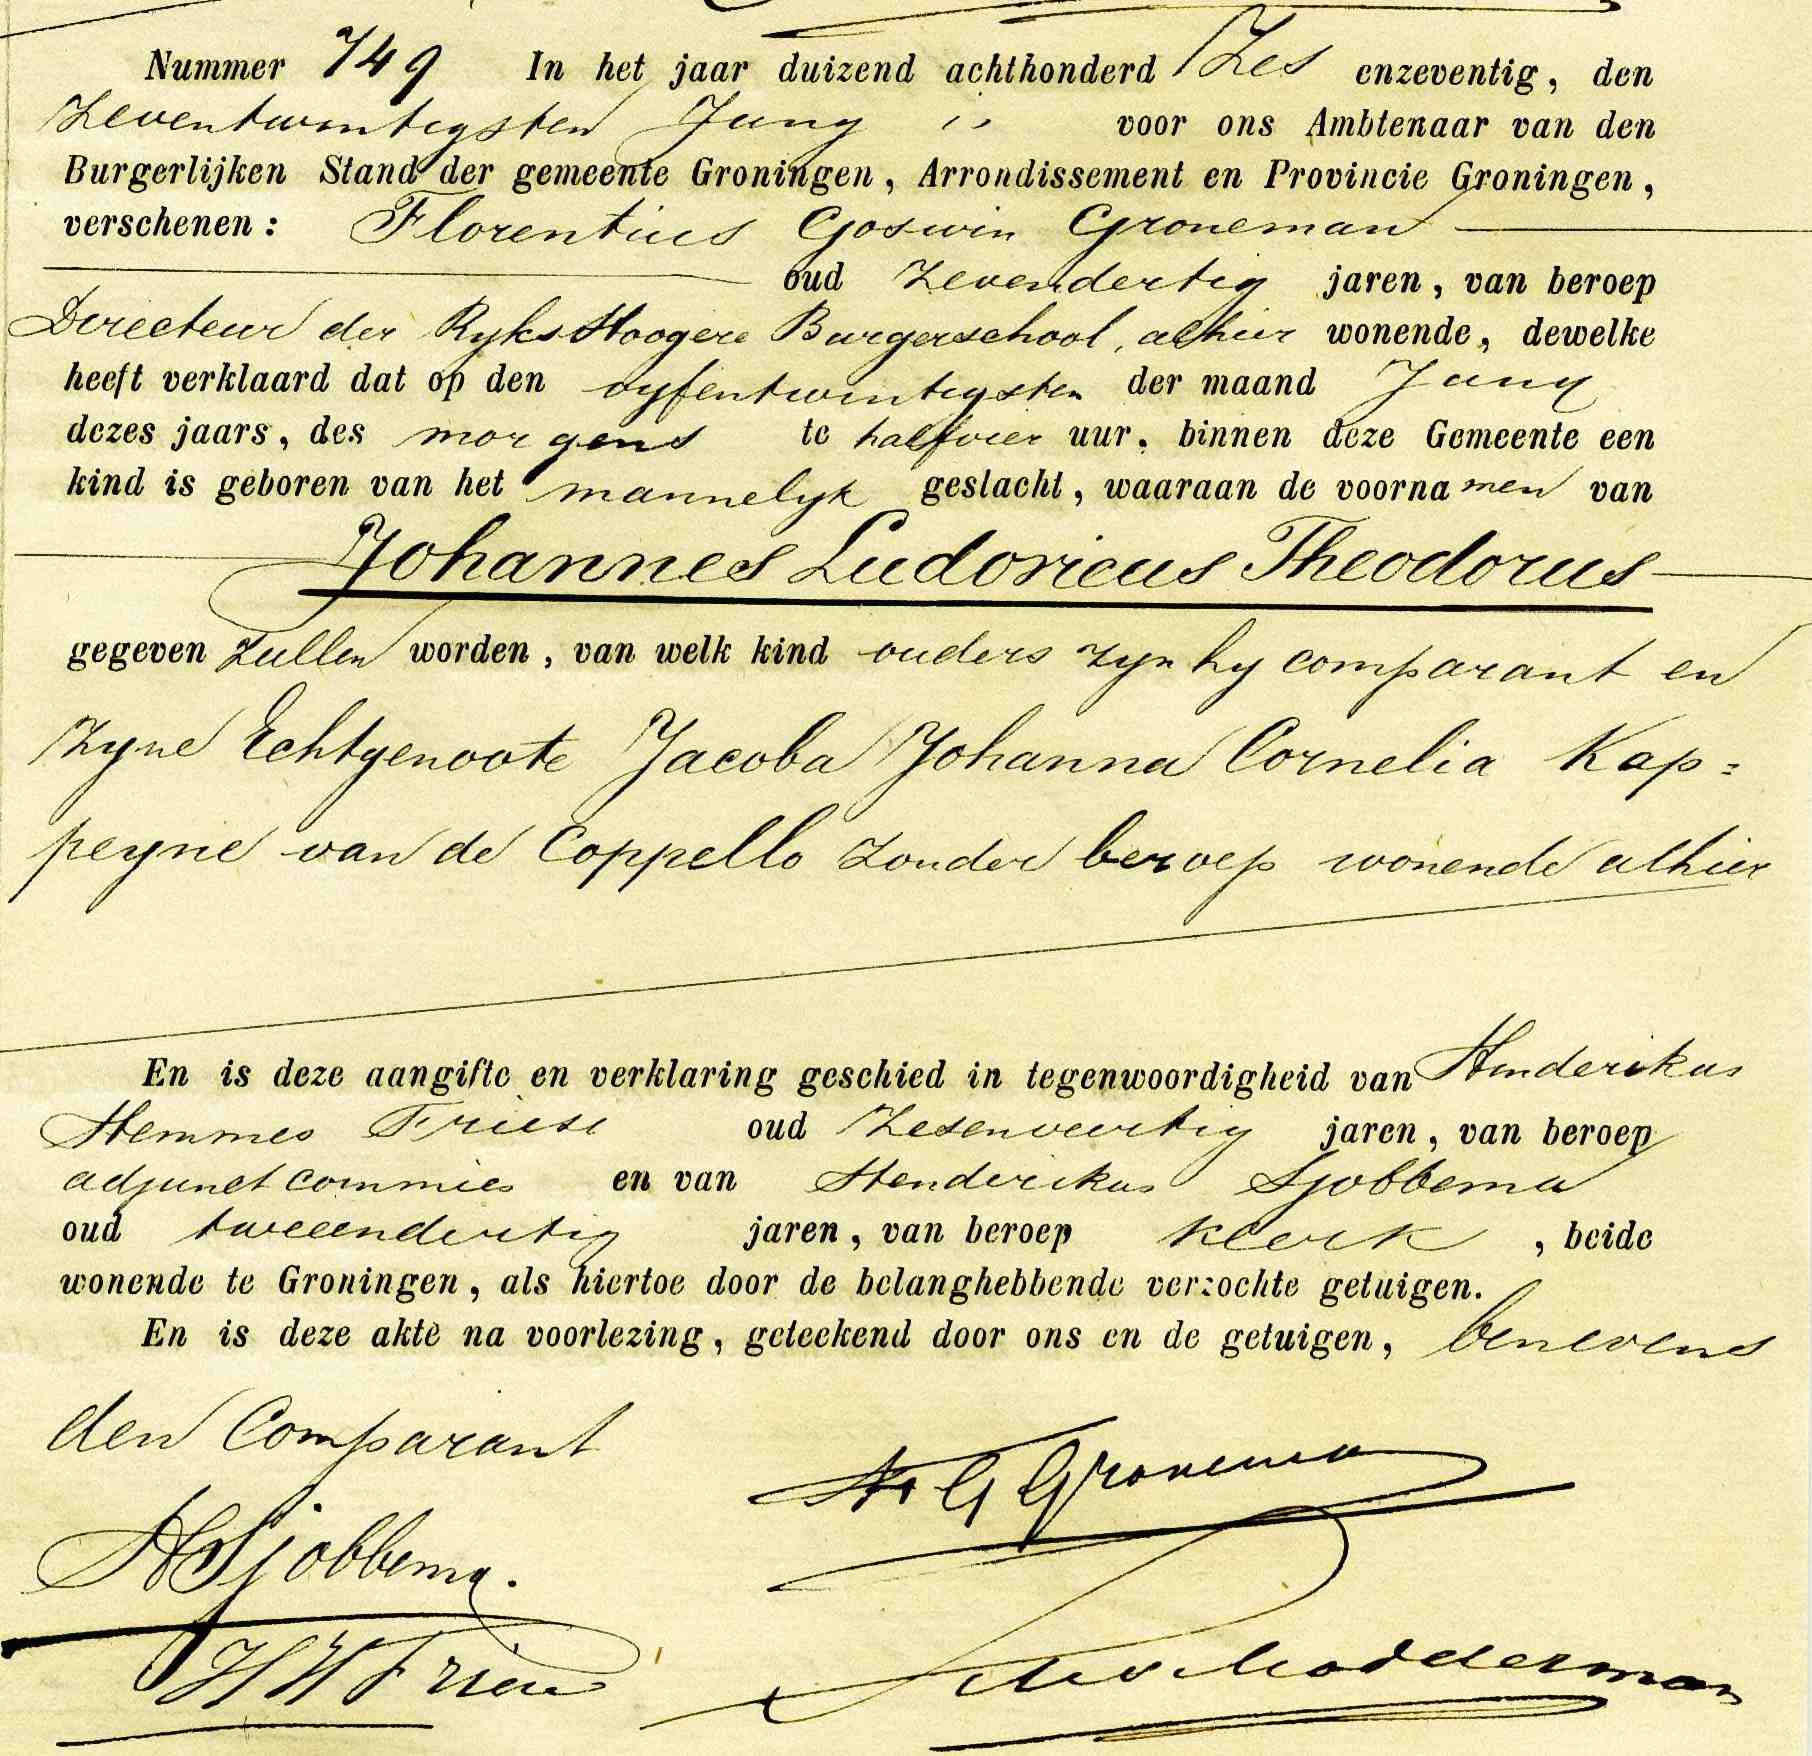 Nummer 749 In het jaar duizend achthonderd Zes enzeventig, den
Zeventwintigsten Juny voor ons Ambtenaar van den
Burgerlijken Stand der gemeente Groningen, Arrondissement en Provincie Groningen,
verschenen: Florentius Goswin Groneman
oud Zevendertig jaren, van beroep
Directeur der Ryks Hoogere Burgerschool, alhier wonende, dewelke
heeft verklaard dat op den vyfentwintigsten der maand Juny
dezes jaars, des morgens te halfvier uur, binnen deze Gemeente een
kind is geboren van het mannelyk geslacht, waaraan de voornamen van
Johannes Ludovicus Theodorus
gegeven zullen worden, van welk kind ouders zyn hy comparant en
zyne Echtgenoote Jacoba Johanna Cornelia Kap=
peyne van de Coppello zonder beroep wonende alhier
En is deze aangifte en verklaring geschied in tegenwoordigheid van Henderikus
Hemmes Friese oud Zesenveertig jaren, van beroep
adjunct commies en van Henderikus Sjobbema
oud tweeendertig jaren, van beroep klerk, beide
wonende te Groningen, als hiertoe door de belanghebbende verzochte getuigen.
En is deze akte na voorlezing, geteekend door ons en de getuigen, benevens
den Comparant
G Groneman
HSjobbema.
HH Friese
Modderman